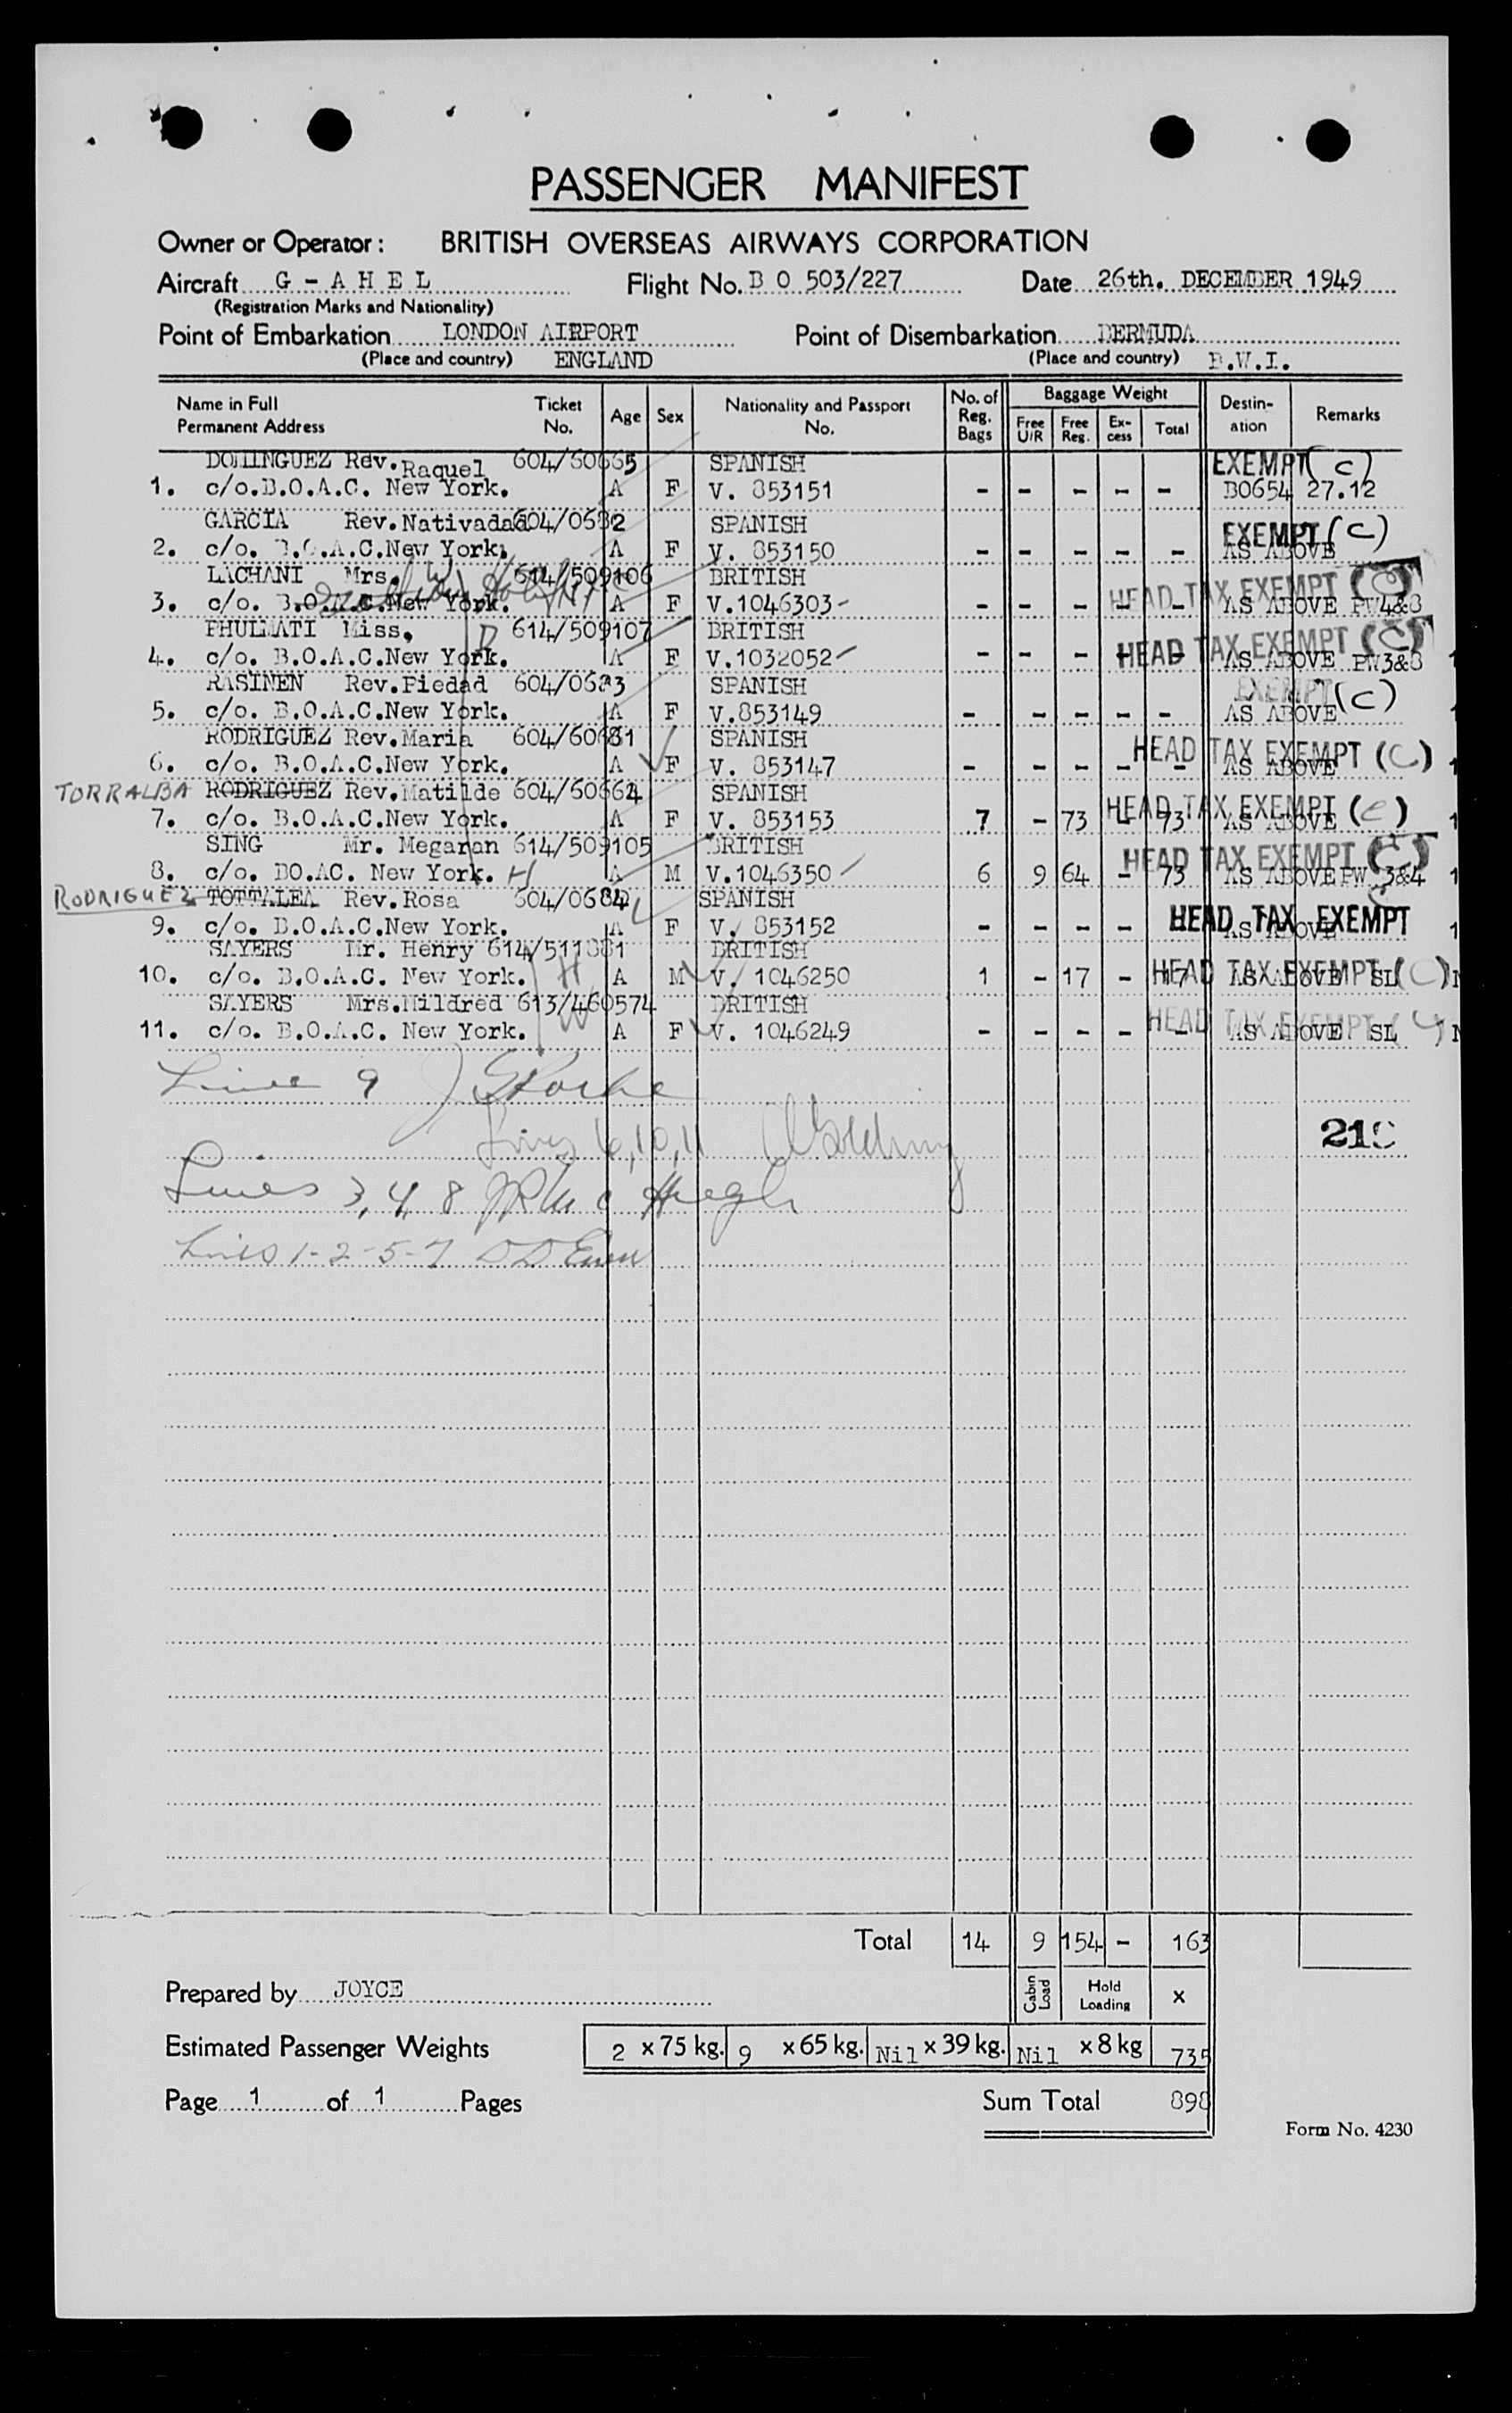 PASSENGER MANIFEST
Owner or Operator: BRITISH OVERSEAS AIRWAYS CORPORATION
Aircraft G - A H E L Flight No. B O 503/227 Date 26th. DECEMBER 1949
(Registration Marks and Nationality)
Point of Embarkation LONDON AIRPORT Point of Disembarkation BERMUDA
(Place and country) ENGLAND (Place and country) B.W.I.
Name in Full Permanent Address Ticket No. Age Sex Nationality and Passport No. No. of Reg. Bags Baggage Weight Free U/R Free Reg. Ex-cess Total Destin-ation Remarks
DOMINGUEZ Rev. Raquel 604/60665 SPANISH EXEMPT (C)
1. c/o.B.O.A.C. New York. A F V. 853151 - - - - - BO654 27.12
GARCIA Rev. Nativadad 604/0682 SPANISH EXEMPT (C)
2. c/o. B.O.A.C.New York. A F V. 853150 - - - - - AS ABOVE
LACHANI Mrs. W 614/509106 BRITISH HEAD TAX EXEMPT (C)
3. c/o. B.O.A.C.New York. A F V.1046303 - - - - - AS ABOVE PW4&8
PHULMATI Miss, D 614/509107 BRITISH HEAD TAX EXEMPT (C)
4. c/o. B.O.A.C.New York. A F V.1032052 - - - - - AS ABOVE PW3&8 1
RASINEN Rev.Piedad 604/0683 SPANISH EXEMPT (C)
5. c/o. B.O.A.C.New York. A F V.853149 - - - - - AS ABOVE 1
RODRIGUEZ Rev.Maria 604/60681 SPANISH HEAD TAX EXEMPT (C)
6. c/o. B.O.A.C.New York. A F V. 853147 - - - - - AS ABOVE 1
TORRALBA RODRIGUEZ Rev.Matilde 604/60664 SPANISH HEAD TAX EXEMPT (C)
7. c/o. B.O.A.C.New York. A F V. 853153 7 - 73 - 73 AS ABOVE 1
SING Mr. Megaran 614/509105 BRITISH HEAD TAX EXEMPT (C)
8. c/o. BO.AC. New York. H A M V.1046350 6 9 64 - 73 AS ABOVE PW 3&4 1
RODRIGUEZ TOTTALEA Rev.Rosa 604/0684 SPANISH HEAD TAX EXEMPT
9. c/o. B.O.A.C.New York. A F V. 853152 - - - - AS ABOVE 1
SAYERS Mr. Henry 614/511881 BRITISH HEAD TAX EXEMPT (C)
10. c/o. B.O.A.C. New York. H A M V. 1046250 1 - 17 - 17 AS ABOVE SL
SAYERS Mrs.Mildred 613/460574 BRITISH HEAD TAX EXEMPT (C)
11. c/o. B.O.A.C. New York. W A F V. 1046249 - - - - - AS ABOVE SL
Line 9
Lines 6,10,11
219
Lines 3, 4, 8
Lines 1-2-5-7
Total 14 9 154 - 163
Prepared by JOYCE Cabin Load Hold Loading x
Estimated Passenger Weights 2 x 75 kg. 9 x 65 kg. Nil x 39 kg. Nil x 8 kg 735
Page 1 of 1 Pages Sum Total 898
Form No. 4230